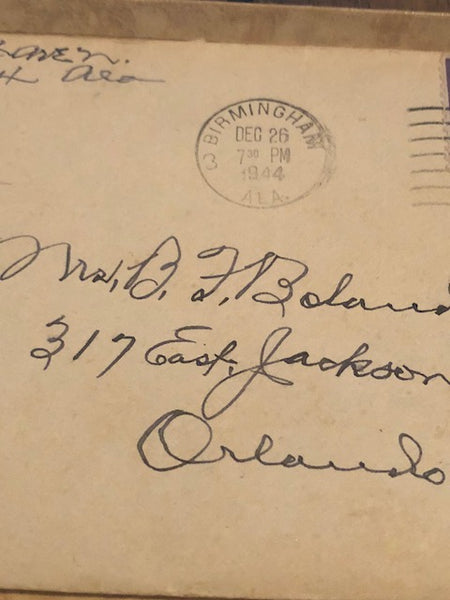 Ala
BIRMINGHAM
3
DEC 26
7³⁰ PM
1944
ALA.
Mrs. B. F. Boland
317 East Jackson
Orlando